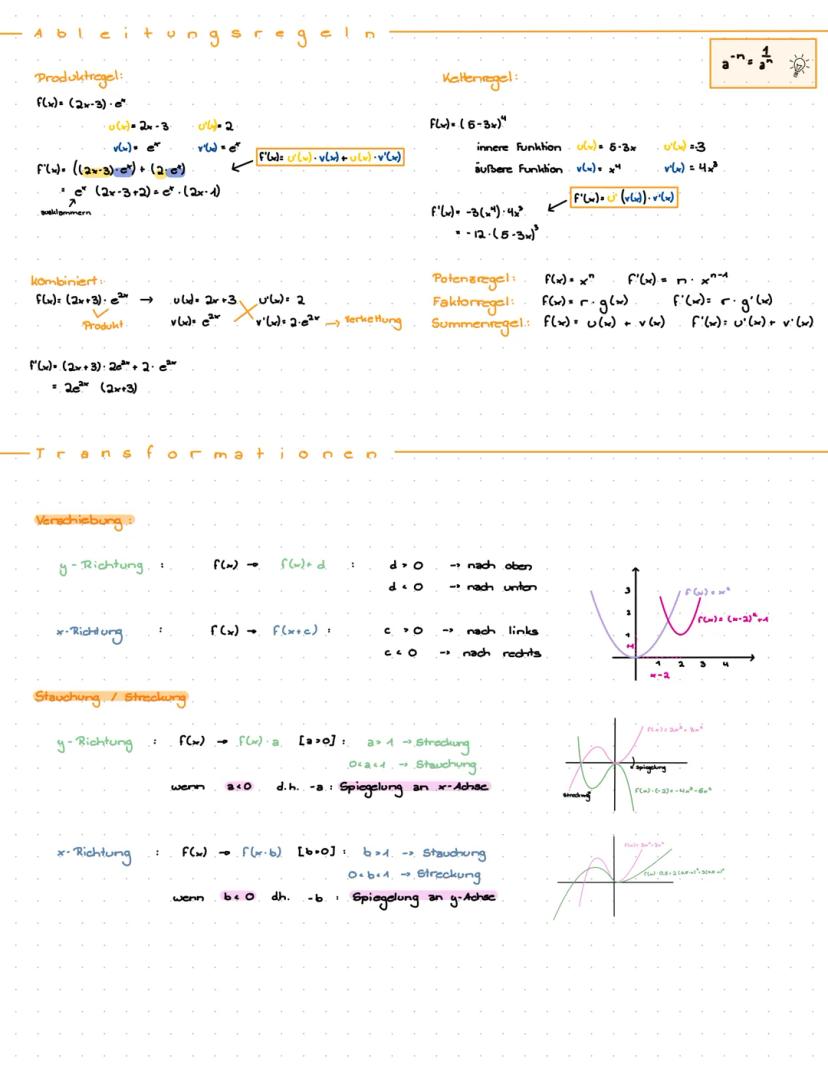 Ableitungsregeln
a⁻ⁿ = 1/aⁿ
Produktregel:
f(x) = (2x-3) · eˣ
u(x) = 2x-3 u'(x) = 2
v(x) = eˣ v'(x) = eˣ
f'(x) = u'(x) · v(x) + u(x) · v'(x)
f'(x) = ((2x-3) · eˣ) + (2 · eˣ)
= eˣ (2x-3+2) = eˣ · (2x-1)
ausklammern
Kettenregel:
f(x) = (5-3x)⁴
innere Funktion u(x) = 5-3x u'(x) = -3
äußere Funktion v(x) = x⁴ v'(x) = 4x³
f'(x) = u' (v(x)) · v'(x)
f'(x) = -3(x⁴) · 4x³
= -12 · (5-3x)³
kombiniert:
f(x) = (2x+3) · e²ˣ → u(x) = 2x+3 u'(x) = 2
Produkt
v(x) = e²ˣ v'(x) = 2 · e²ˣ → Verkettung
f'(x) = (2x+3) · 2e²ˣ + 2 · e²ˣ
= 2e²ˣ (2x+3)
Potenzregel: f(x) = xⁿ f'(x) = n · xⁿ⁻¹
Faktorregel: f(x) = r · g(x) f'(x) = r · g'(x)
Summenregel: f(x) = u(x) + v(x) f'(x) = u'(x) + v'(x)
Transformationen
Verschiebung:
y-Richtung : f(x) → f(x)+d : d > 0 → nach oben
d < 0 → nach unten
x-Richtung : f(x) → f(x+c) : c > 0 → nach links
c < 0 → nach rechts
3
2
1
+1
1 2 3 4
x-2
f(x) = x²
f(x) = (x-2)²+1
Stauchung / Streckung
y-Richtung : f(x) → f(x) · a [a>0] : a > 1 → Streckung
0<a<1 → Stauchung
wenn a<0 d.h. -a : Spiegelung an x-Achse
Spiegelung
Streckung
x-Richtung : f(x) → f(x·b) [b>0] : b>1 → Stauchung
0<b<1 → Streckung
wenn b<0 dh. -b : Spiegelung an y-Achse